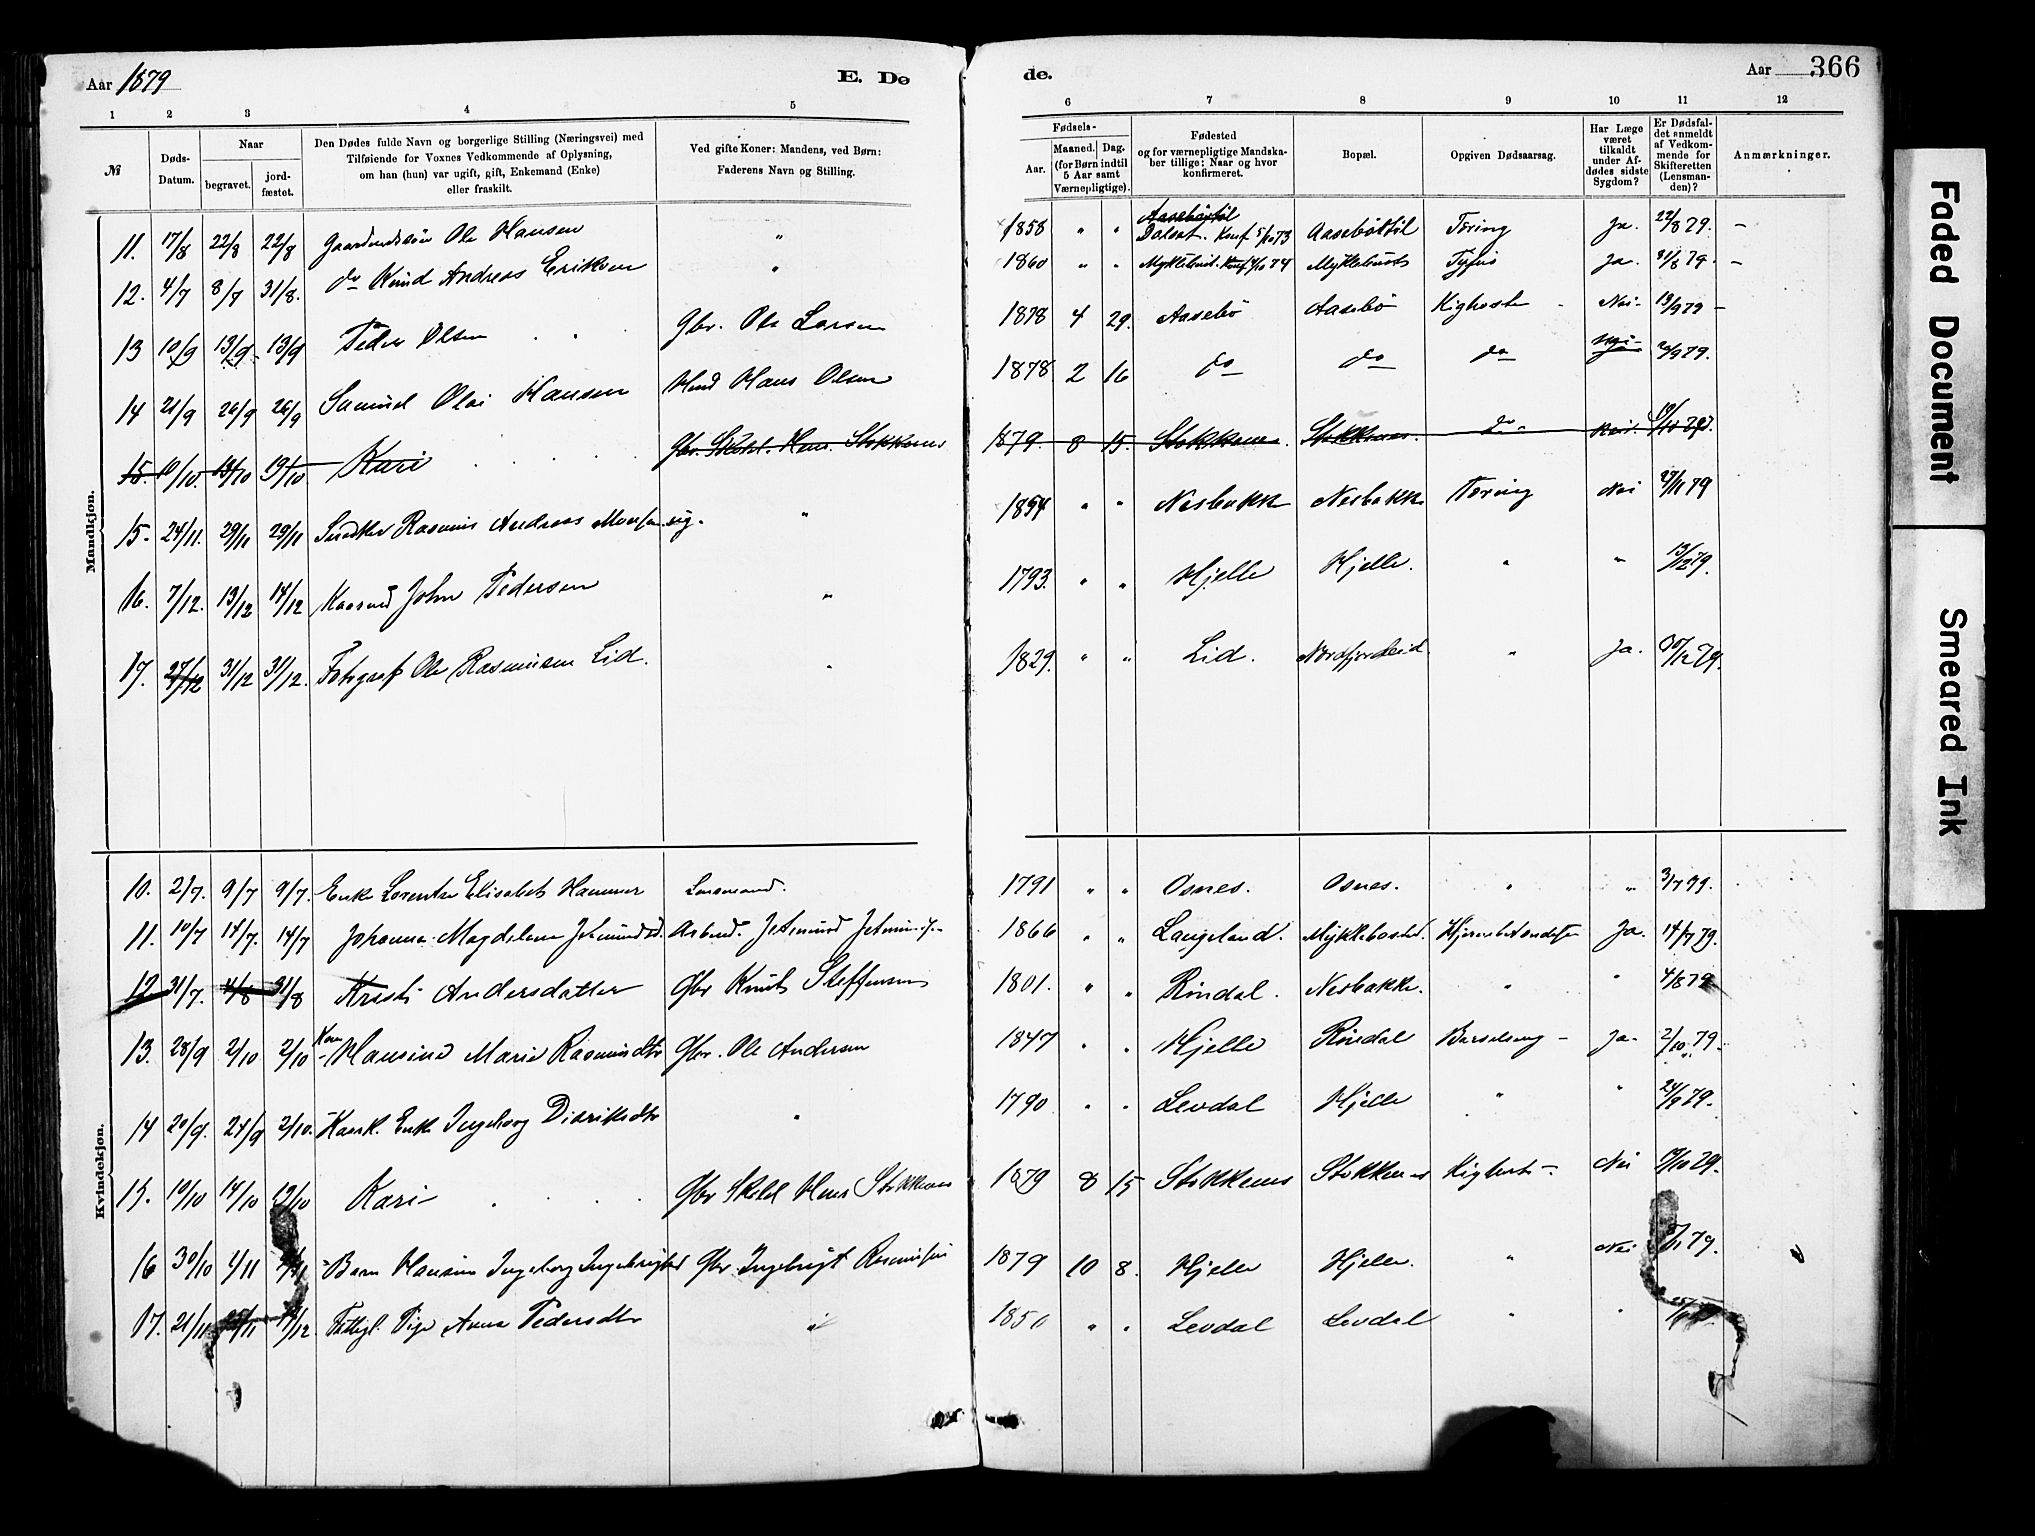 Aar 1879
E. Dø
de.
Aar
366
1 2 3 4 5
6 7 8 9 10 11 12
№
Døds-
Datum.
Naar
begravet.
jord-
fæstet.
Den Dødes fulde Navn og borgerlige Stilling (Næringsvei) med
Tilføiende for Voxnes Vedkommende af Oplysning,
om han (hun) var ugift, gift, Enkemand (Enke)
eller fraskilt.
Ved gifte Koner: Mandens, ved Børn:
Faderens Navn og Stilling.
Fødsels-
Aar.
Maaned. Dag.
(for Børn indtil
5 Aar samt
Værnepligtige).
Fødested
og for værnepligtige Mandska-
ber tillige: Naar og hvor
konfirmeret.
Bopæl.
Opgiven Dødsaarsag.
Har Læge
været
tilkaldt
under Af-
dødes sidste
Sygdom?
Er Dødsfal-
det anmeldt
af Vedkom-
mende for
Skifteretten
(Lensman-
den)?
Anmærkninger.
Mandkjøn.
11. 17/8 22/8 22/8 Gaardmandssøn Ole Hansen " 1858 " " Aasebøstøl Dalsat. Konf 5/10 73 Aasebøstøl Tæring Ja. 22/8 79. –
12. 4/7 8/7 31/8. do Knud Andreas Eriksen " 1860 " " Myklebust. Konf 4/10 74 Myklebust Tyfus Ja. 31/8 79. –
13 10/9 13/9. 13/9 Peder Olsen Gbr. Ole Larsen 1878 4 29. Aasebø Aasebø Kighoste Nei- 13/9 79 –
14 21/9 26/9 26/9 Samuel Olai Hansen Hmd Hans Olsen 1878 2 16 do do do Nei- 79.
15. 10/10. 19/10 Kari Gbr. Hans. Stokkenes 1879. 8 15. Stokkenes Stokkenes do Nei. 19/10 79.
15. 24/11. 29/11 29/11 Snedker Rasmus Andreas Monsen ug. " 1854 " " Nesbakk Nesbakk Tæring Nei 29/11 79
16. 7/12. 13/12 14/12 Kaarmd John Pedersen " 1793. " " Hjelle Hjelle. " " 13/12 79.
17. 27/12 31/12 31/12. Fotograf Ole Rasmusen Lid. " 1829. " " Lid. Nordfjordeid. " Ja. 30/12 79.
Kvindekjøn.
10. 2/7. 9/7 9/7. Enke Lorentse Elisabet Hammer Lensmand. 1791 " " Osnes. Osnes. " " 3/7 79.
11. 10/7 14/7. 14/7 Johanna Magdalena Jetmundsd. Arbmd. Jetmund 1866 " " Langeland. Myklebostad. Ja. 14/7 79.
12 31/7. 4/8 31/8 Kristi Andersdatter Gbr Knut Steffensen 1801. " " Rindal. Nesbakke. " " 4/8 79
13. 28/9 2/10 2/10 Kone Hansine Marie Rasmusdtr Gbr. Ole Andersen 1847 " " Hjelle Rindal Barselseng – Ja. 2/10 79.
14 20/9. 24/9 2/10. Kaark. Enke Ingeborg Didriksdtr " 1790 " " Levdal Hjelle " " 24/9 79.
15. 10/10 14/10 19/10 Kari Gbr Hans Stokkenes 1879 8 15 Stokkenes Stokkenes Kighoste –. Nei 19/10 79.
16 30/10 4/11 Barn Hansine Ingeborg Ingebrigtsd Gbr. Ingebrigt Rasmusen 1879 10 8. Hjelle Hjelle. " Nei 79.
17. 21/11 Fattigl. Pige Anna Pedersdtr " 1850 " " Levdal Levdal " "
Faded Document
Smeared Ink